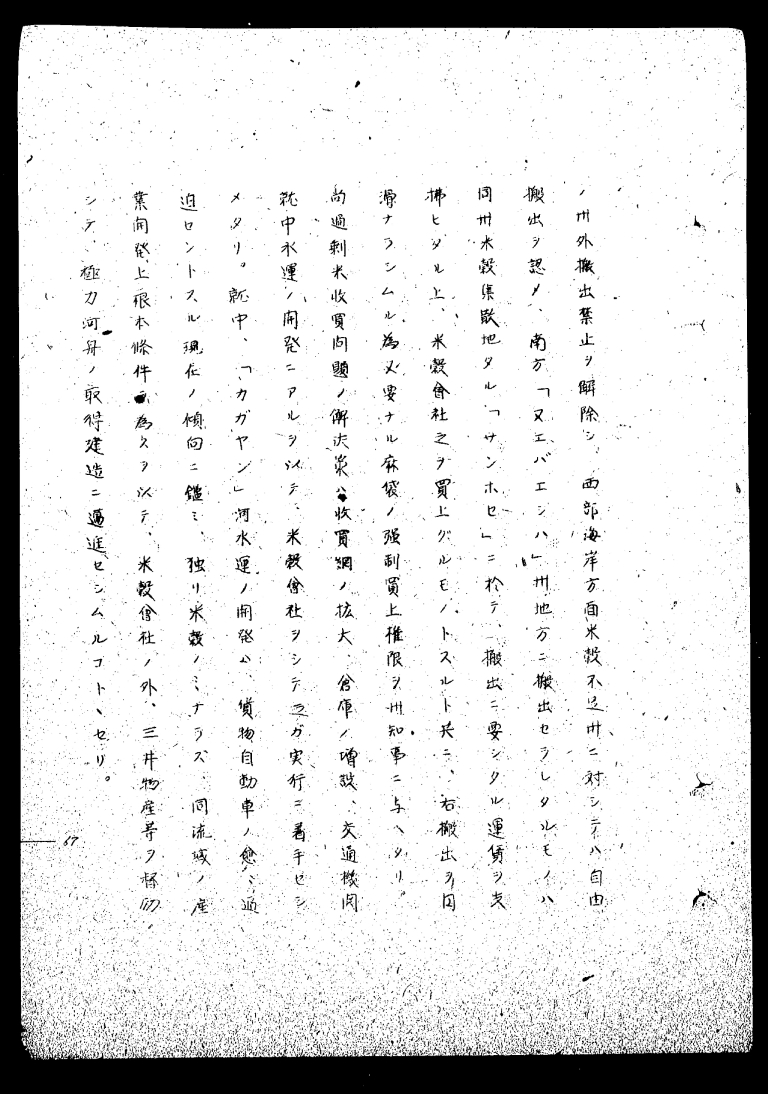 ノ州外搬出禁止ヲ解除シ、西部海岸方面米穀不足州ニ対シテハ自由
搬出ヲ認メ、南方「ヌエバエシハ」州地方ニ搬出セラレタルモノハ
同州米穀集散地タル「サンホセ」ニ於テ、搬出ニ要シタル運賃ヲ支
拂ヒタル上、米穀會社之ヲ買上グルモノトスルト共ニ、右搬出ヲ円
滑ナラシムル為必要ナル麻袋ノ強制買上権限ヲ州知事ニ与ヘタリ。
尚過剰米收買問題ノ解決策ハ收買網ノ拡大、倉庫ノ増設、交通機関
就中水運ノ開発ニアルヲ以テ、米穀會社ヲシテ之ガ実行ニ着手セシ
メタリ。就中、「カガヤン」河水運ノ開発ハ、貨物自動車ノ愈々逼
迫セントスル現在ノ傾向ニ鑑ミ、独リ米穀ノミナラズ、同流域ノ産
業開発上根本條件ヲ為スヲ以テ、米穀會社ノ外、三井物産等ヲ督励
シテ、極力河舟ノ取得建造ニ邁進セシムルコトヽセリ。
67